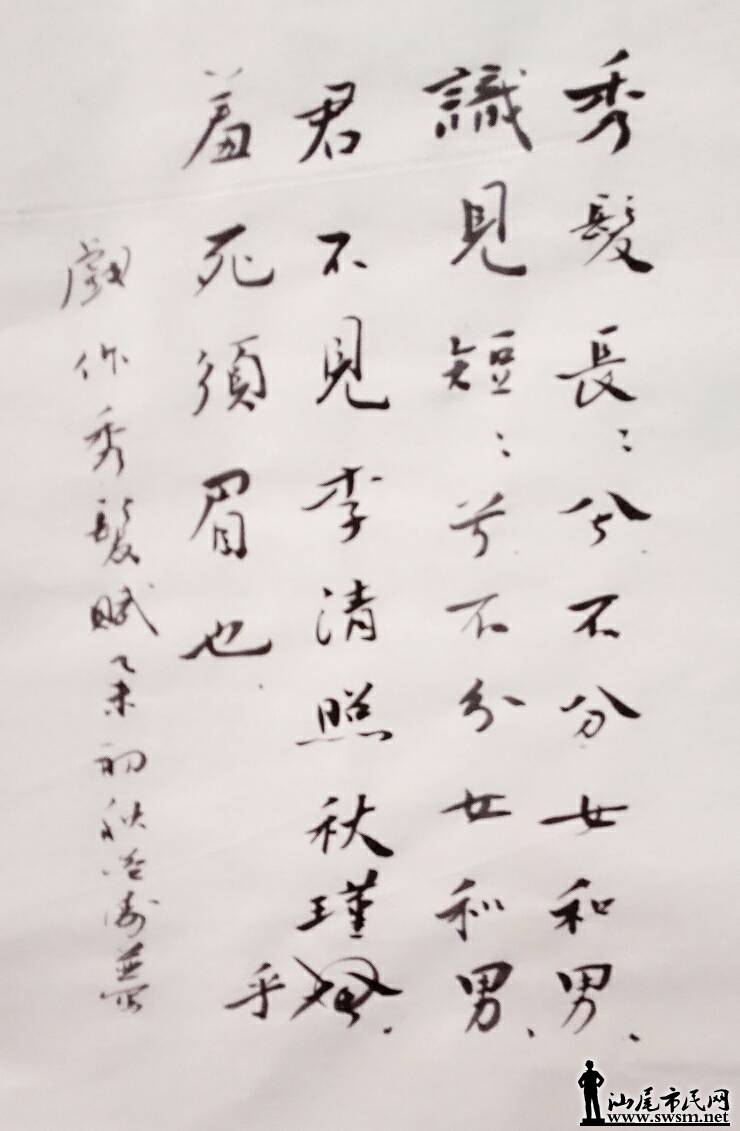 秀髮長：兮不分女和男、
識見短：兮不分女和男、
君不見李清照秋瑾乎
羞死須眉也.
戲作秀髮賦乙未初秋
汕尾市民网
www.swsm.net